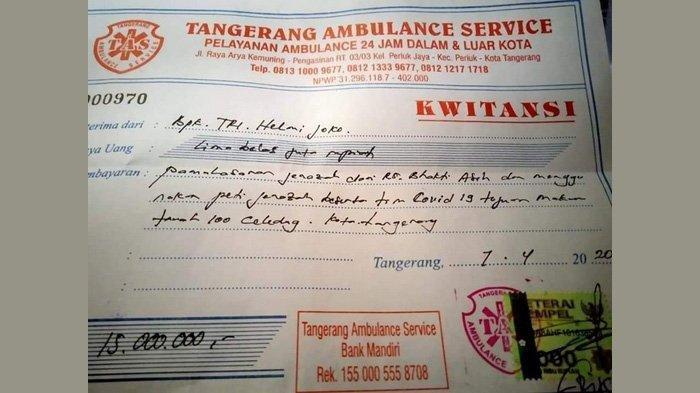 TANGERANG AMBULANCE SERVICE
PELAYANAN AMBULANCE 24 JAM DALAM & LUAR KOTA
Jl. Raya Arya Kemuning - Pengasinan RT. 03/03 Kel. Periuk Jaya - Kec. Periuk - Kota Tangerang
Telp. 0813 1000 9677, 0812 1333 9677, 0812 1217 1718
NPWP 31.296.118.7 - 402.000
TANGERANG
TAS
AMBULANCE SERVICE
000970
KWITANSI
erima dari : Bpk. TRI. Helmi Joko.
ya Uang : Lima belas juta rupiah
mbayaran : Pemakaman jenazah dari RS. Bhakti Asih dan menggu
nakan peti jenazah beserta tim Covid 19 tujuan makam
tanah 100 Celedug. Kota tangerang
Tangerang, 7 - 4 2020
15.000.000,-
Tangerang Ambulance Service
Bank Mandiri
Rek. 155 000 555 8708
TANGERANG
TAS
AMBULANCE
ETERAI
EMPEL
000